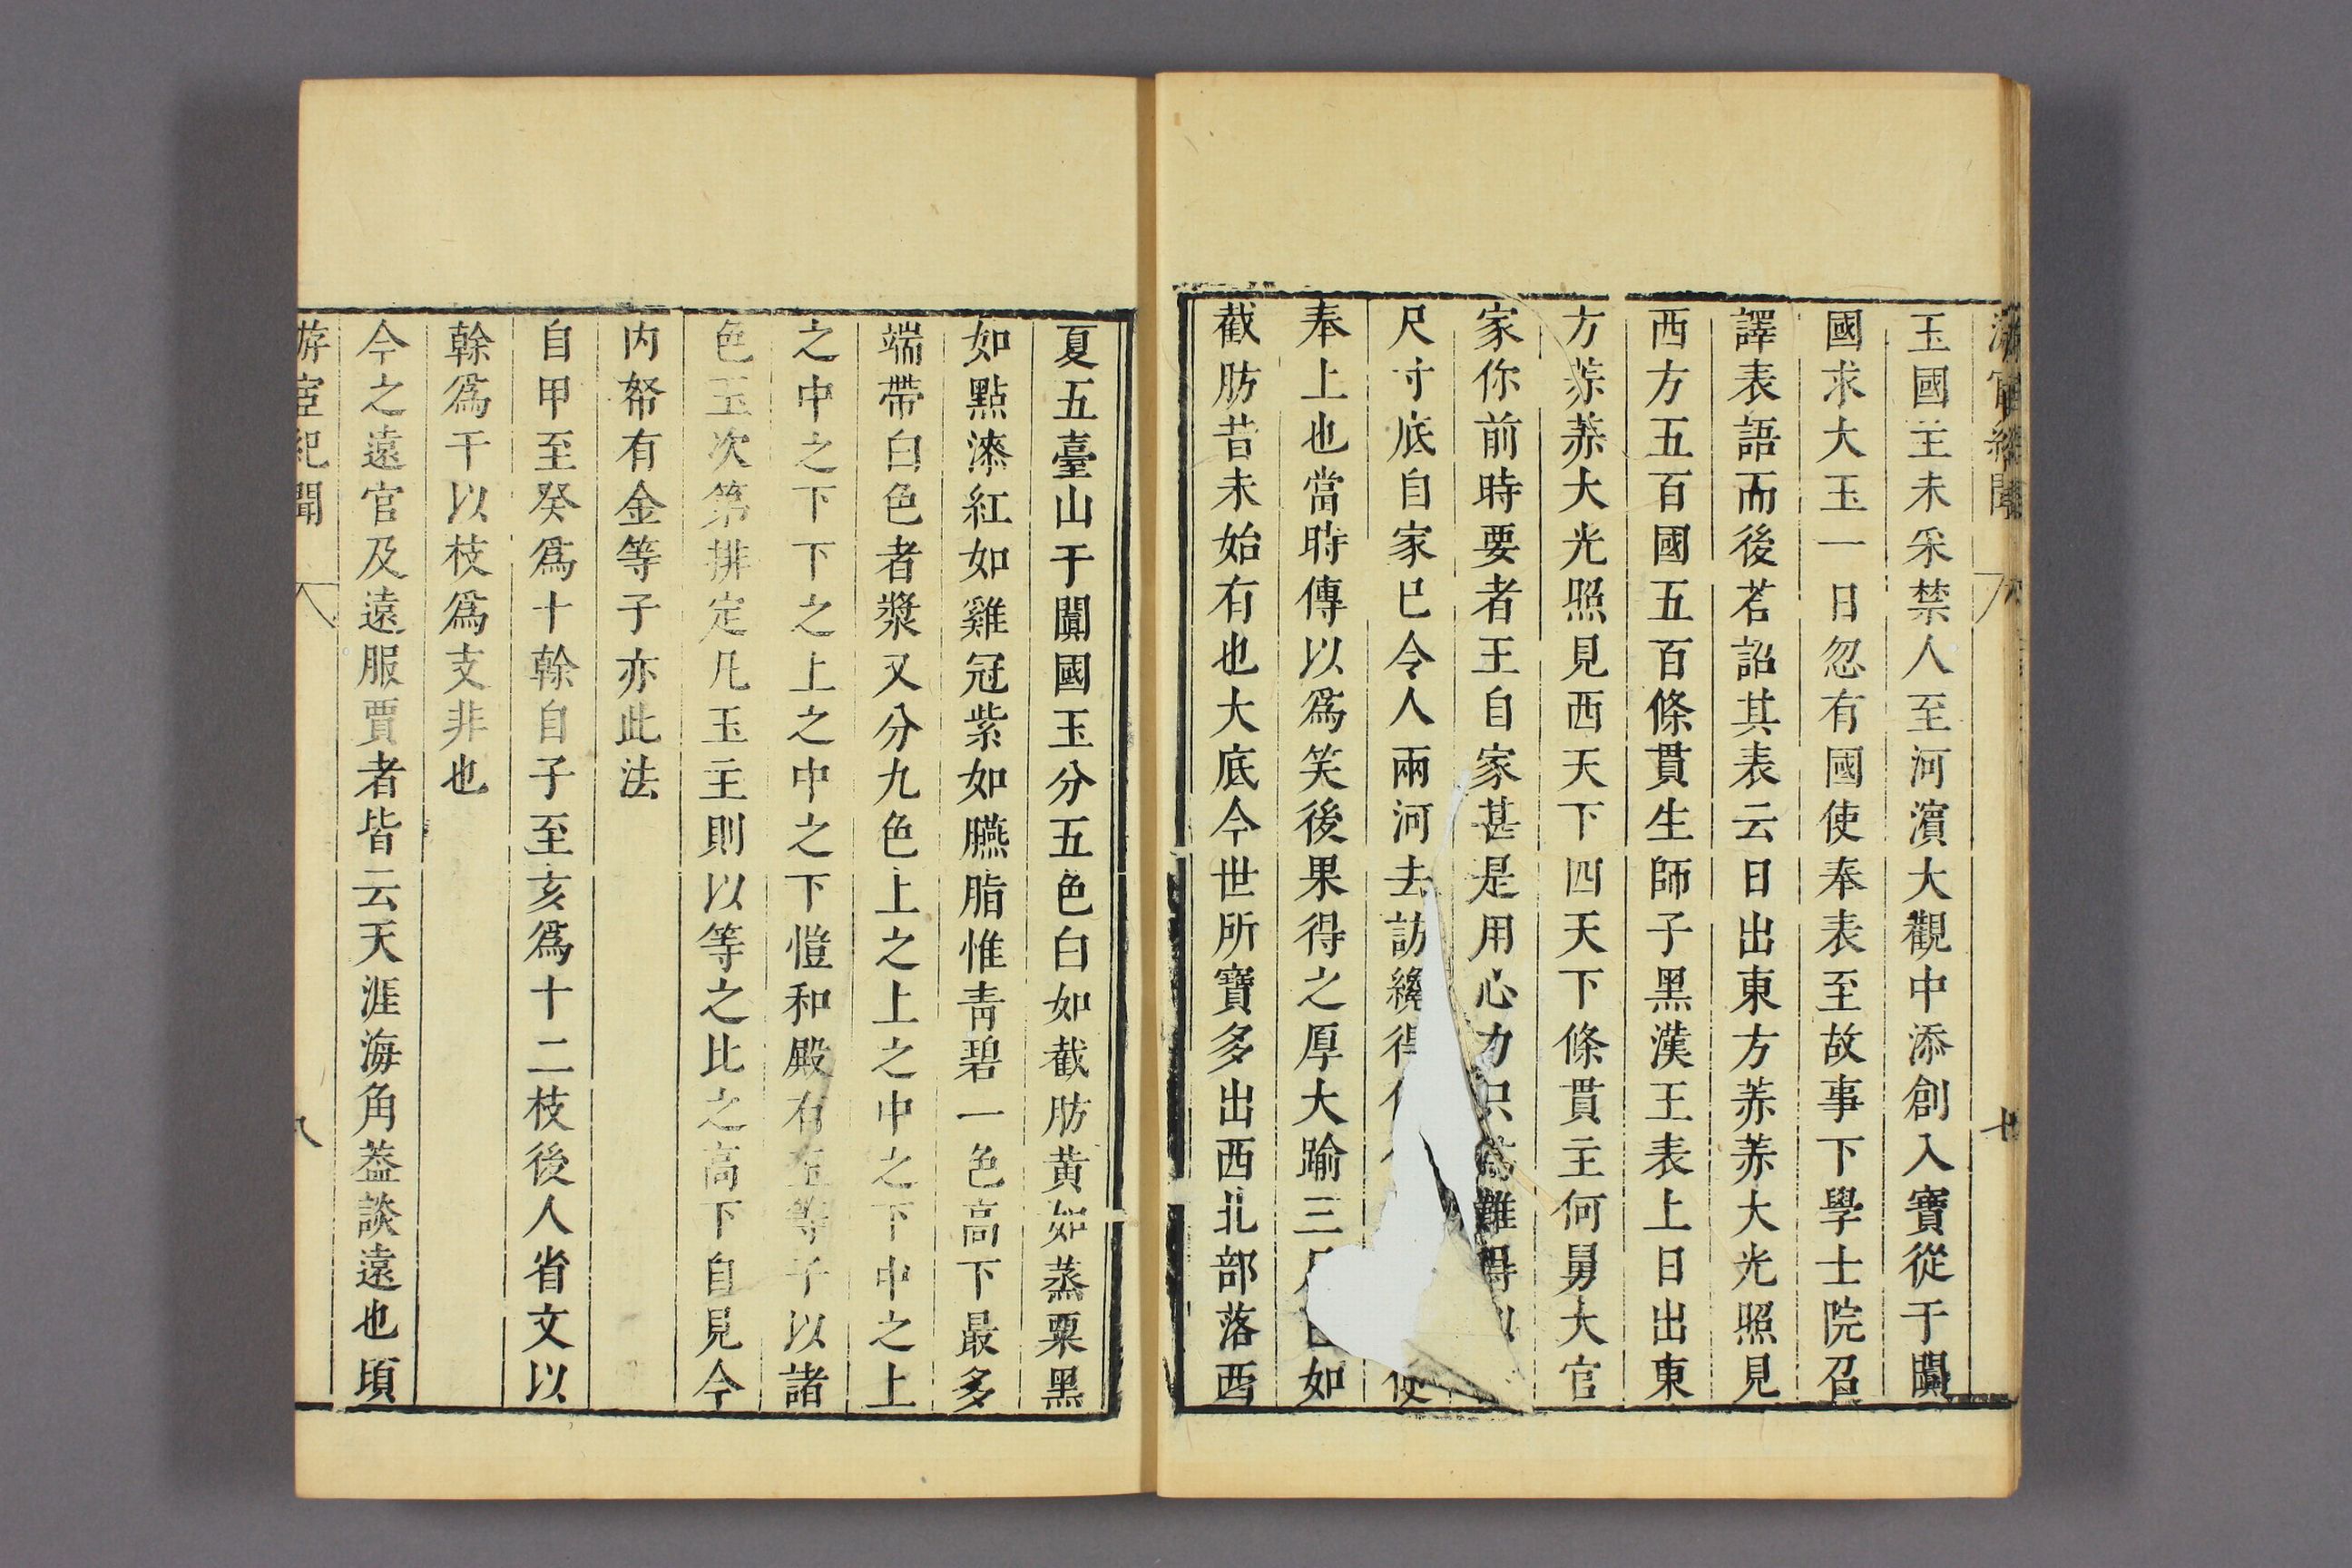 玉國主未采禁人至河濵大觀中添創入寶從于闐
國求大玉一日忽有國使奉表至故事下學士院召
譯表語而後若詔其表云日出東方赤赤大光照見
西方五百國五百條貫生師子黑漢王表上日出東
方赤赤大光照見西天下四天下條貫主何舅大官
家你前時要者王自家甚是用心力只爲難得
尺寸底自家已令人兩河去訪纔得
奉上也當時傳以爲笑後果得之厚大踰三如
截肪昔未始有也大底今世所寶多出西北部落西
夏五臺山于闐國玉分五色白如截肪黄如蒸栗黑
如點漆紅如雞冠紫如臙脂惟靑碧一色高下最多
端帶白色者漿又分九色上之上之中之下中之上
之中之下下之上之中之下愷和殿有玉等子以諸
色玉次第排定凡玉主則以等之比之高下自見今
内帑有金等子亦此法
自甲至癸爲十榦自子至亥爲十二枝後人省文以
榦爲干以枝爲支非也
今之遠官及遠服賈者皆云天涯海角葢談遠也頃
游宦紀聞 八